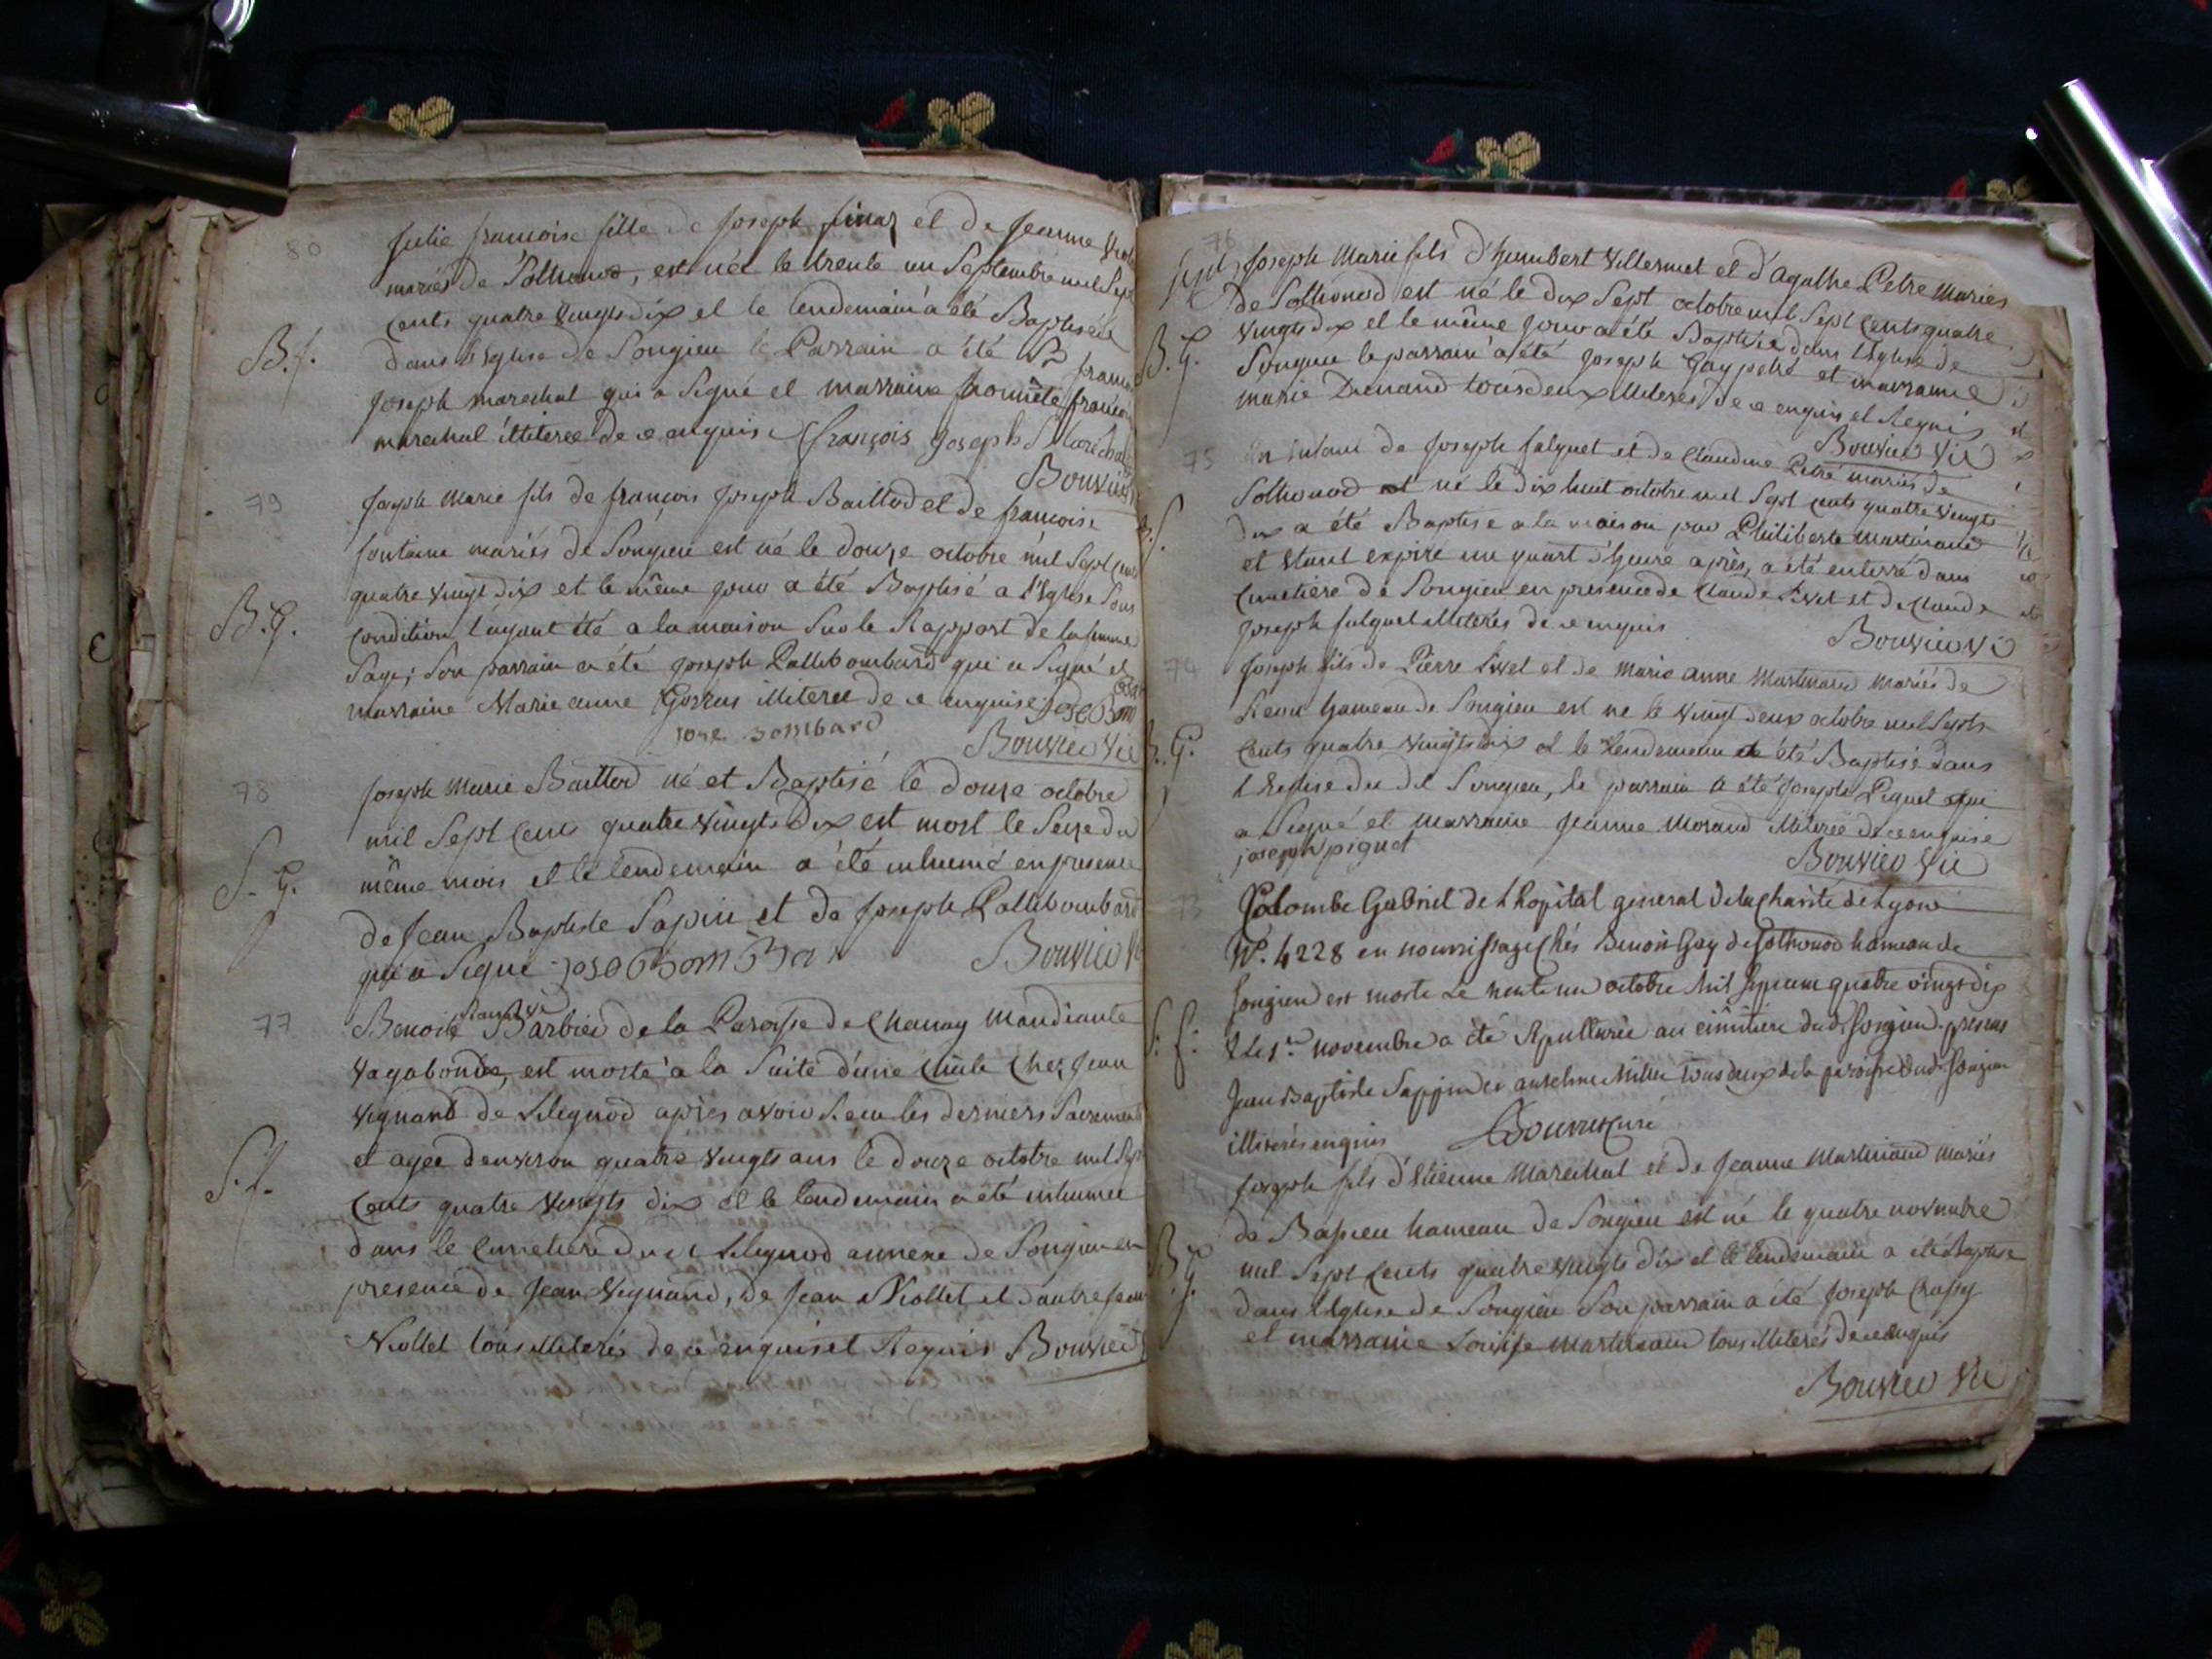 80
Julie francoise fille de Joseph finaz et de Jeanne
mariés de Sothonod, est née le trente un Septembre mil Sept
Cents quatre Vingts dix et le lendemain a été Baptisée
B. f.
dans l'Eglise de Songieu le Parrain a été Sr francois
Joseph marechal qui a Signé et marraine honnête francoise
marechal illiterée de ce enquise françois Joseph Marechal
Bouvier
79
Joseph Marie fils de françois Joseph Baillod et de francoise
fontaine mariés de Songieu est né le douze octobre mil Sept cens
quatre vingt dix et le même jour a été Baptisé a l'Eglise Sous
B. G.
Condition l'ayant été a la maison Sur le Rapport de la femme
Sage; Son parrain a été Joseph Pallebombard qui a Signé et
marraine Marie anne illiterée de ce enquise jose Bom
jose bombard
Bouvier Vic
78
Joseph Marie Baillod né et Baptisé le douze octobre
mil Sept Cens quatre Vingts dix est mort le Seize du
S. G.
même mois et le lendemain a été inhumé en presence
de Jean Baptiste Sapin et de Joseph Pallebombard
qui a Signé joseBomBar Bouvier
77
Benoite Barbier de la Paroisse de Chanay mandiante
Vagabonde, est morte a la Suite d'une Chute Chez Jean
Vignand de Lilignod après avoir Reçu les derniers Sacrements
S. f.
et agée d'environ quatre Vingts ans le douze octobre mil Sept
Cents quatre Vingts dix et le lendemain a été inhumée
dans le Cimetiere dudit Lilignod annexe de Songieu en
presence de Jean Vignand, de Jean Niollet et d'autre Jean
Niollet tous illiterés de ce enquis et Requis Bouvier
76
Sept
Joseph Marie fils d'humbert Villermet et d'agathe Petre Mariés
de Sothonod est né le dix Sept octobre mil Sept Cents quatre
Vingts dix et le même jour a été Baptisé dans l'Eglise de
B. G.
Songieu le parrain a été Joseph Gay petre et marraine
marie Dunand tous deux illiterés de ce enquis et Requis
Bouvier Vic
75
Un Enfant de Joseph falquet et de Claudine Petre mariés de
Sothonod est né le dix huit octobre mil Sept Cents quatre Vingts
dix a été Baptisé a la maison par Philiberte Martinand
et étant expiré un quart d'heure après, a été enterré dans
Cimetiere de Songieu en presence de Claude et de Claude
Joseph falquet illiterés de ce enquis
Bouvier Vic
74
Joseph fils de Pierre et de Marie anne Martinand Mariés de
hameau de Songieu est né le Vingt deux octobre mil Sept
B. G.
Cents quatre Vingts dix et le lendemain a été Baptisé dans
l'Eglise du dit Songieu, le parrain a été Joseph Piquet qui
a Signé et marraine Jeanne Morand illiterée de ce enquise
joseph piquet
Bouvier Vic
73
Colombe Gabriel de l'hopital general de la Charité de Lyon
N°. 4228 en nourrissage Chés Benoit Gay de Sothonod hameau de
Songieu est morte Le trente un octobre Mil Sept cent quatre vingt dix
S. f.
& le 1er novembre a été Sepulturée au cimitiere dudt Songieu. presens
Jean Baptiste Sappin et anselme Millet tous deux de la paroisse dudt Songieu
illiterés enquis
Bouvier Curé
Joseph fils d'Etienne Marechal et de Jeanne Martinand mariés
de Bassieu hameau de Songieu est né le quatre novembre
B. G.
mil Sept Cents quatre Vingts dix et le lendemain a été Baptisé
dans l'Eglise de Songieu Son parrain a été Joseph
et marraine Louise Martinand tous illiterés de ce enquis
Bouvier Vic